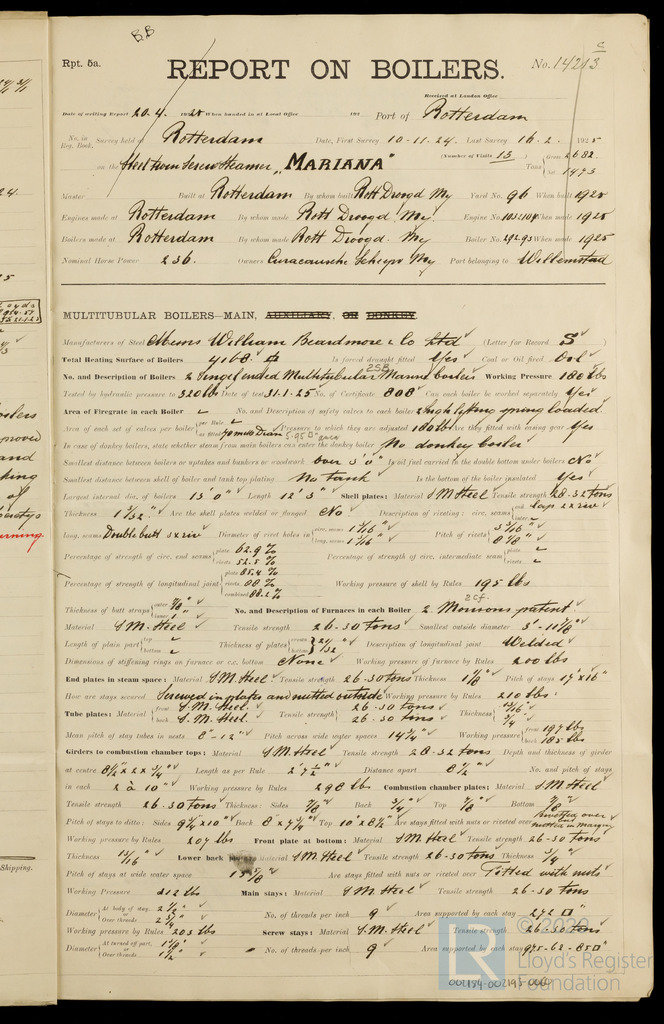 BB
Rpt. 5a.
REPORT ON BOILERS.
No. 14213
Received at London Office
Date of writing Report 20-4. 1925 When handed in at Local Office 192 Port of Rotterdam
No. in Reg. Book. Survey held at Rotterdam Date, First Survey 10-11-24. Last Survey 16-2. 1925
on the Steel Twin Screw Steamer "MARIANA" (Number of Visits 13) Tons Gross 2682 Net 1473
Master Built at Rotterdam By whom built Rott Droogd My Yard No. 96 When built 1925
Engines made at Rotterdam By whom made Rott Droogd. My Engine No. 103 & 104 When made 1925
Boilers made at Rotterdam By whom made Rott Droogd. My Boiler No. 292 93 When made 1925
Nominal Horse Power 236. Owners Curacaosche Scheepv My Port belonging to Willemstad
MULTITUBULAR BOILERS—MAIN, AUXILIARY, OR DONKEY.
Manufacturers of Steel Messrs William Beardmore & Co Ltd (Letter for Record S)
Total Heating Surface of Boilers 4168 Is forced draught fitted Yes Coal or Oil fired Oil
No. and Description of Boilers 2 Single ended Multitubular Marine boilers 2SB Working Pressure 180 lbs
Tested by hydraulic pressure to 320 lbs Date of test 31.1.25 No. of Certificate 808 Can each boiler be worked separately Yes
Area of Firegrate in each Boiler No. and Description of safety valves to each boiler 2 high lifting spring loaded
Area of each set of valves per boiler per Rule as fitted 70 m/m Diam 5.95 Pressure to which they are adjusted 180 lbs Are they fitted with easing gear Yes
In case of donkey boilers, state whether steam from main boilers can enter the donkey boiler No donkey boiler
Smallest distance between boilers or uptakes and bunkers or woodwork over 3'0" Is oil fuel carried in the double bottom under boilers No
Smallest distance between shell of boiler and tank top plating No tank Is the bottom of the boiler insulated Yes
Largest internal dia. of boilers 13'0" Length 12'3" Shell plates: Material S M Steel Tensile strength 28-32 tons
Thickness 1 1/32" Are the shell plates welded or flanged No Description of riveting: circ. seams end Lap 2x riv inter.
long. seams Double butt 3x riv Diameter of rivet holes in circ. seams 1 1/16" long. seams 1 1/16" Pitch of rivets 3 3/16" 8 1/8"
Percentage of strength of circ. end seams plate 62.9% rivets 52.5% Percentage of strength of circ. intermediate seam plate rivets
Percentage of strength of longitudinal joint plate 85.4% rivets 88% combined 88.2% Working pressure of shell by Rules 195 lbs
Thickness of butt straps outer 7/8" inner 1" No. and Description of Furnaces in each Boiler 2 Morisons patent 2cf
Material S M Steel Tensile strength 26-30 tons Smallest outside diameter 3'-11 1/8"
Length of plain part top bottom Thickness of plates crown bottom 21/32" Description of longitudinal joint Welded
Dimensions of stiffening rings on furnace or c.c. bottom None Working pressure of furnace by Rules 200 lbs
End plates in steam space: Material S M Steel Tensile strength 26-30 tons Thickness 1 1/8" Pitch of stays 17"x16"
How are stays secured Screwed in plates and nutted outside Working pressure by Rules 210 lbs
Tube plates: Material front S. M. Steel. back S. M. Steel. Tensile strength 26-30 tons 26-30 tons Thickness 15/16" 3/4"
Mean pitch of stay tubes in nests 8"-12" Pitch across wide water spaces 14 1/4" Working pressure front 197 lbs back 185 lbs
Girders to combustion chamber tops: Material S M Steel Tensile strength 28-32 tons Depth and thickness of girder
at centre 8 1/2"x2x 3/4" Length as per Rule 2'7 1/2" Distance apart 8 1/2" No. and pitch of stays
in each 2 à 10" Working pressure by Rules 298 lbs Combustion chamber plates: Material S M Steel
Tensile strength 26-30 tons Thickness: Sides 7/8" Back 3/4" Top 7/8" Bottom 7/8"
Pitch of stays to ditto: Sides 9 1/4 x 10" Back 8"x 7 3/4" Top 10"x 8 1/2" Are stays fitted with nuts or riveted over rivetted over and nutted in margin
Working pressure by Rules 207 lbs Front plate at bottom: Material S M Steel Tensile strength 26-30 tons
Thickness 15/16 Lower back plate: Material S M Steel Tensile strength 26-30 tons Thickness 3/4"
Pitch of stays at wide water space 13 7/8" Are stays fitted with nuts or riveted over Fitted with nuts
Working Pressure 212 lbs Main stays: Material S M Steel Tensile strength 26-30 tons
Diameter At body of stay, or Over threads 2 1/2" 2 3/4" No. of threads per inch 9 Area supported by each stay 272 □"
Working pressure by Rules 203 lbs Screw stays: Material S. M. Steel Tensile strength 26-30 tons
Diameter At turned off part, or Over threads 1 1/2" No. of threads per inch 9 Area supported by each stay 97.5-62-85 □"
002194-002195-0061
© 2020
LR Lloyd's Register Foundation
Shipping.